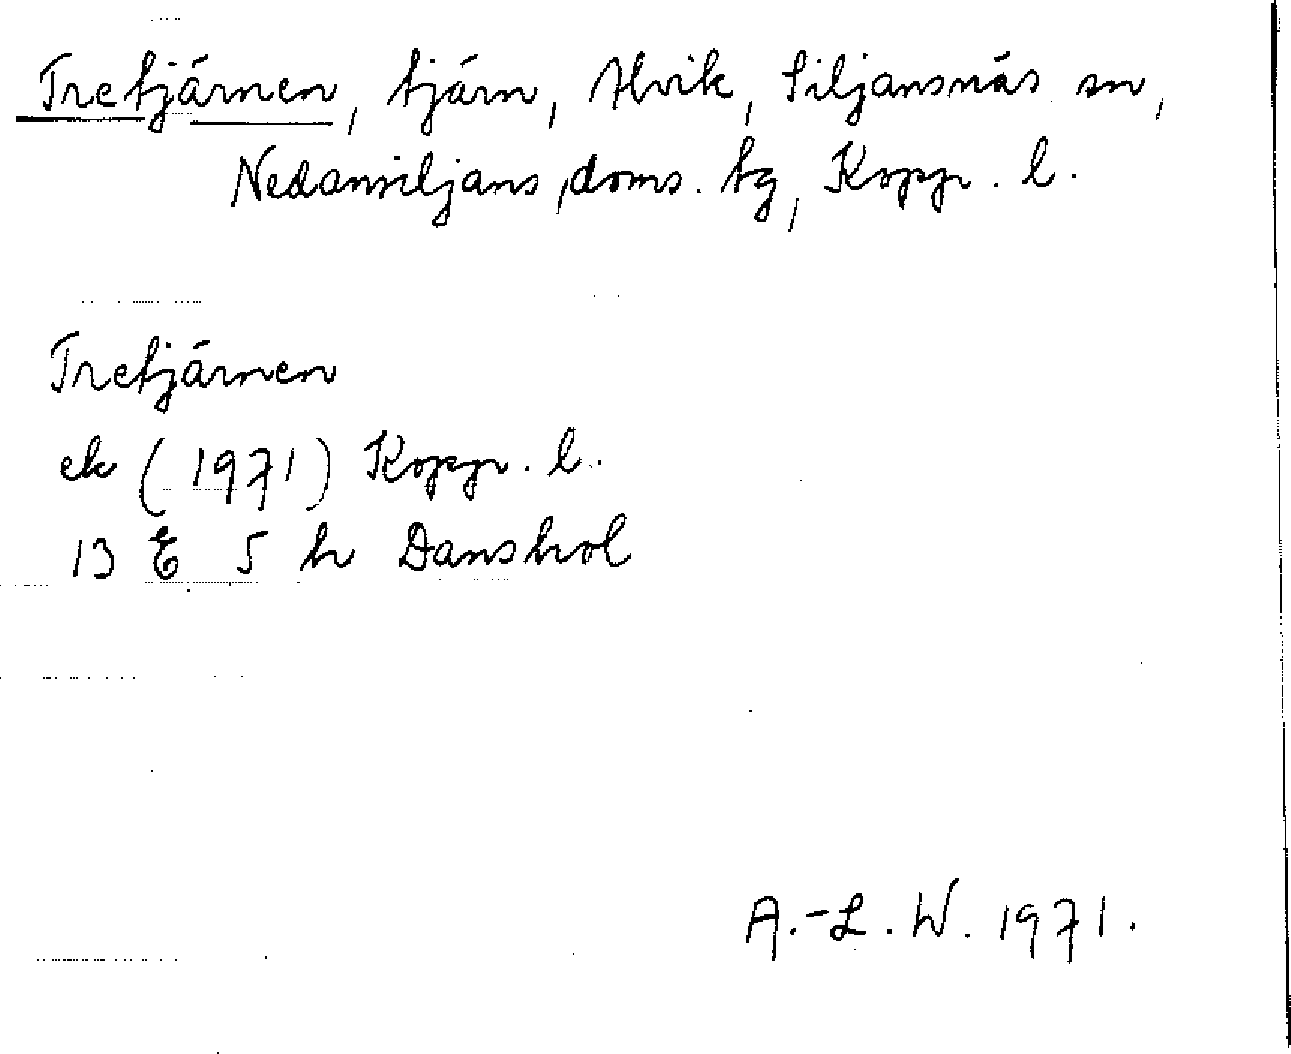 Tretjärnen, tjärn, Alvik, Siljansnäs sn,
Nedansiljans doms. tg, Koppr. l.
Tretjärnen
ek (1971) Koppr. l.
13 E 5 h Danshol
A.-L. W. 1971.